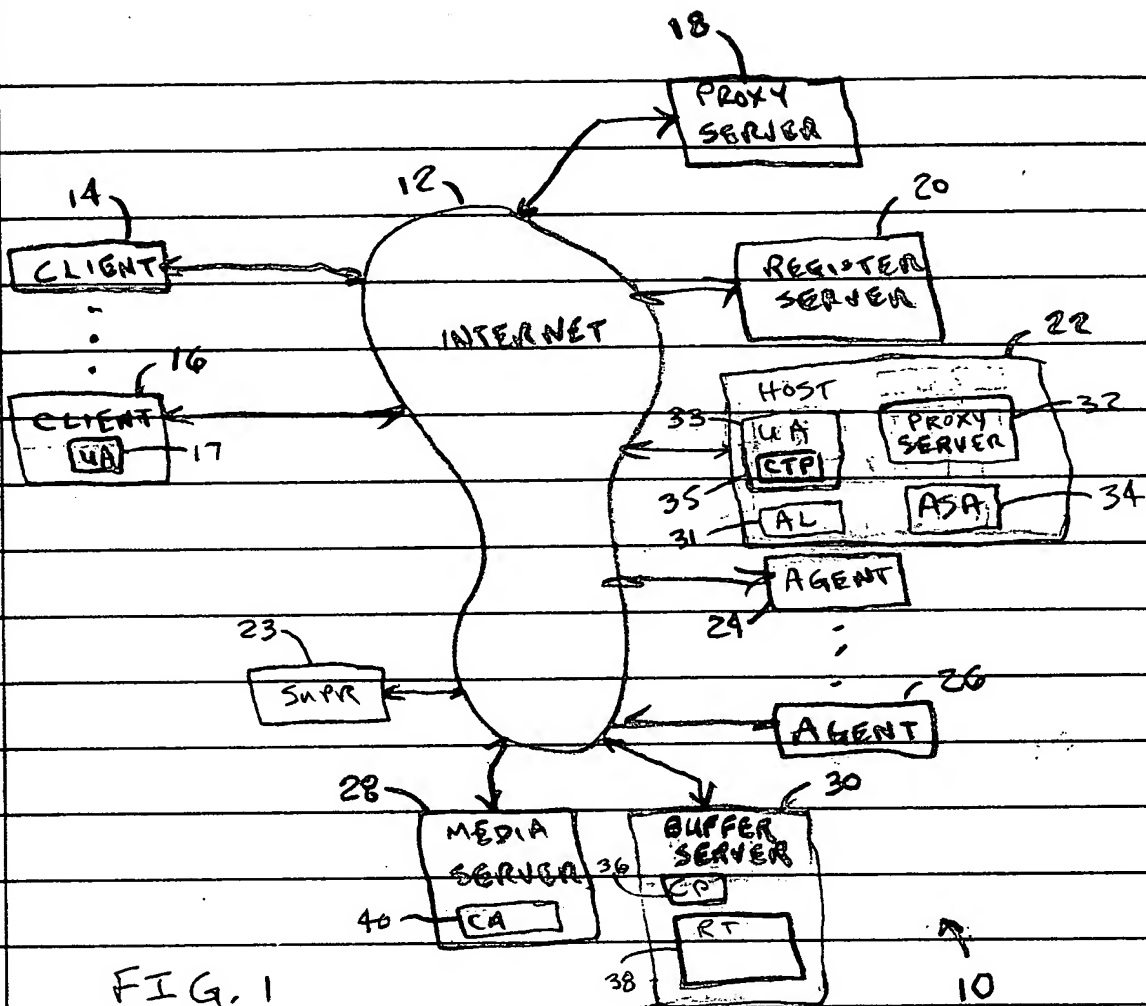 18
PROXY
SERVER
12
14
CLIENT
20
REGISTER
SERVER
INTERNET
16
CLIENT
UA
17
22
HOST
33
UA
CTP
35
PROXY
SERVER
32
31
AL
ASA
34
AGENT
24
23
SUPR
26
AGENT
28
MEDIA
SERVER
40
CA
30
BUFFER
SERVER
36
CP
RT
38
10
FIG. 1